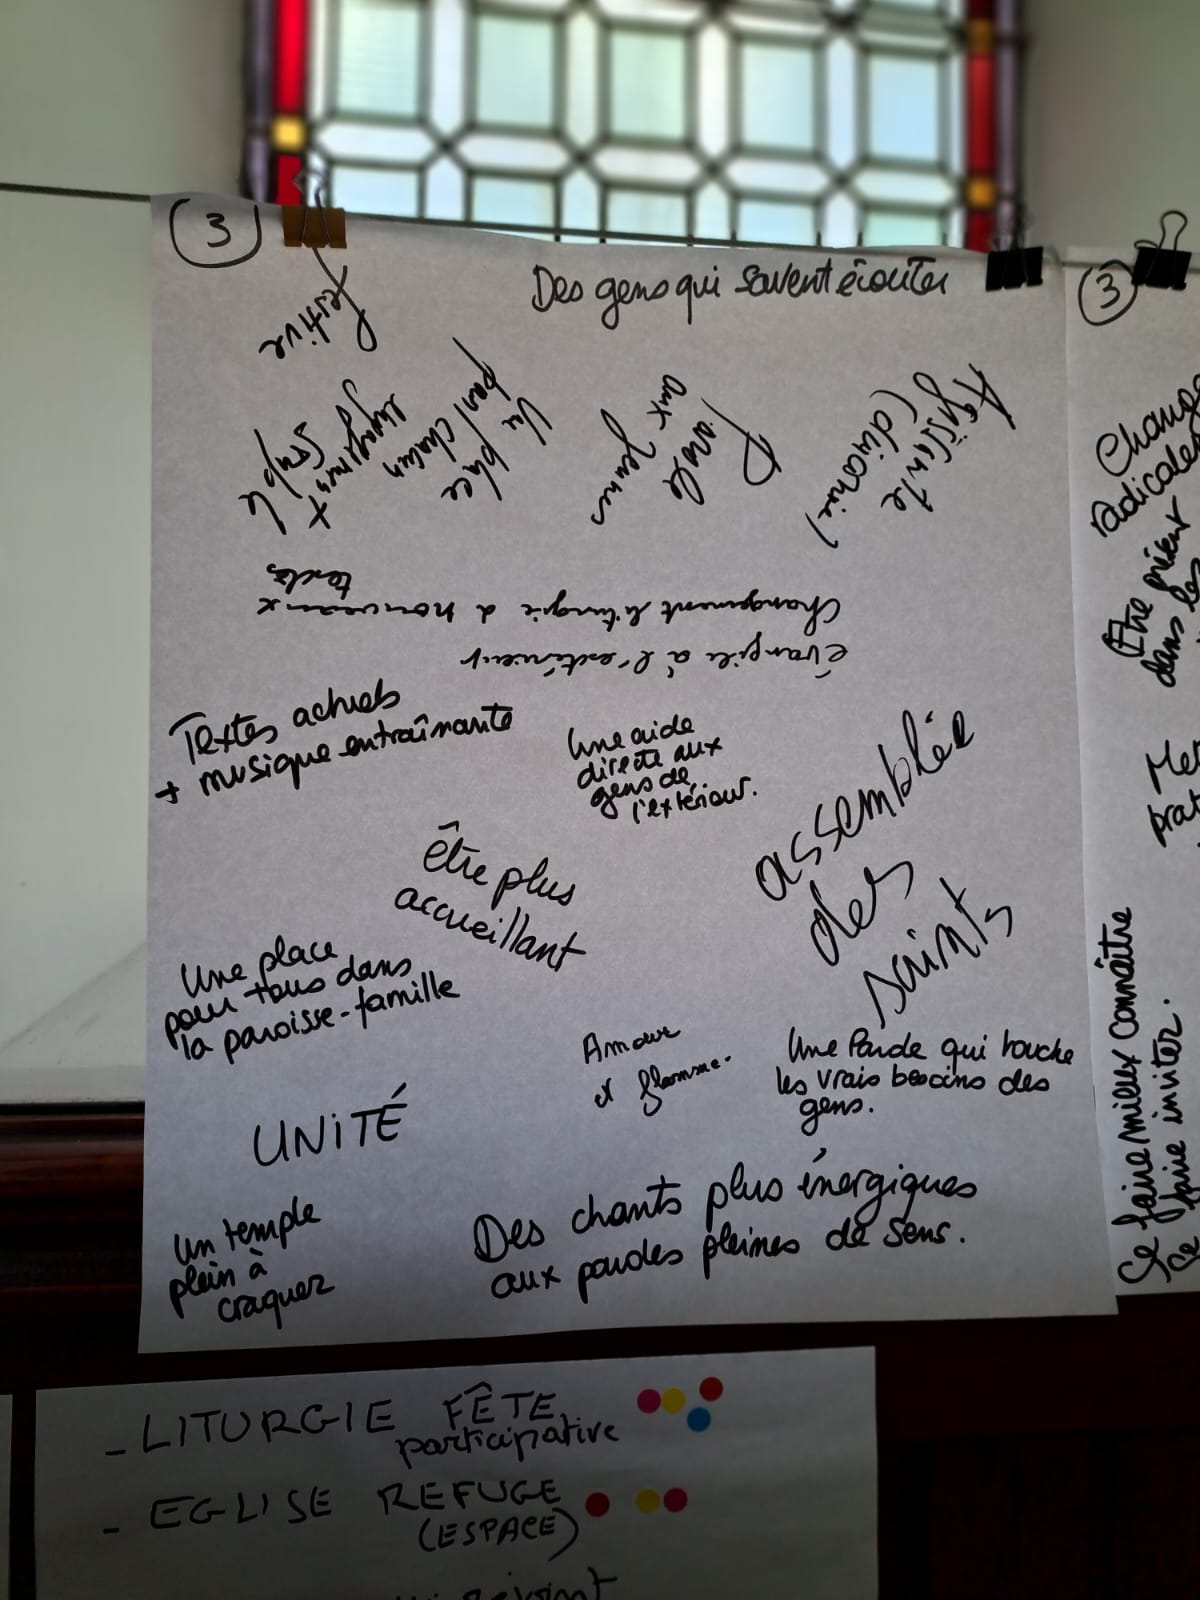 3
Des gens qui savent écouter
festive
simple
+
Une place
pour chacun
Parole
aux jeunes
Agissante
(diaconie)
Changement liturgie à nouveaux
textes
évangile à l'extérieur
Textes actuels
+ musique entraînante
Une aide
directe aux
gens de
l'extérieur.
assemblée
des
saints
être plus
accueillant
Une place
pour tous dans
la paroisse-famille
Amour
et flamme.
Une Parole qui touche
les vrais besoins des
gens.
UNITÉ
Un temple
plein à
craquer
Des chants plus énergiques
aux paroles pleines de sens.
3
radicale
Être
dans les
Ce faire mieux connaître
ce faire inviter.
- LITURGIE FÊTE
participative
- EGLISE REFUGE
(ESPACE)